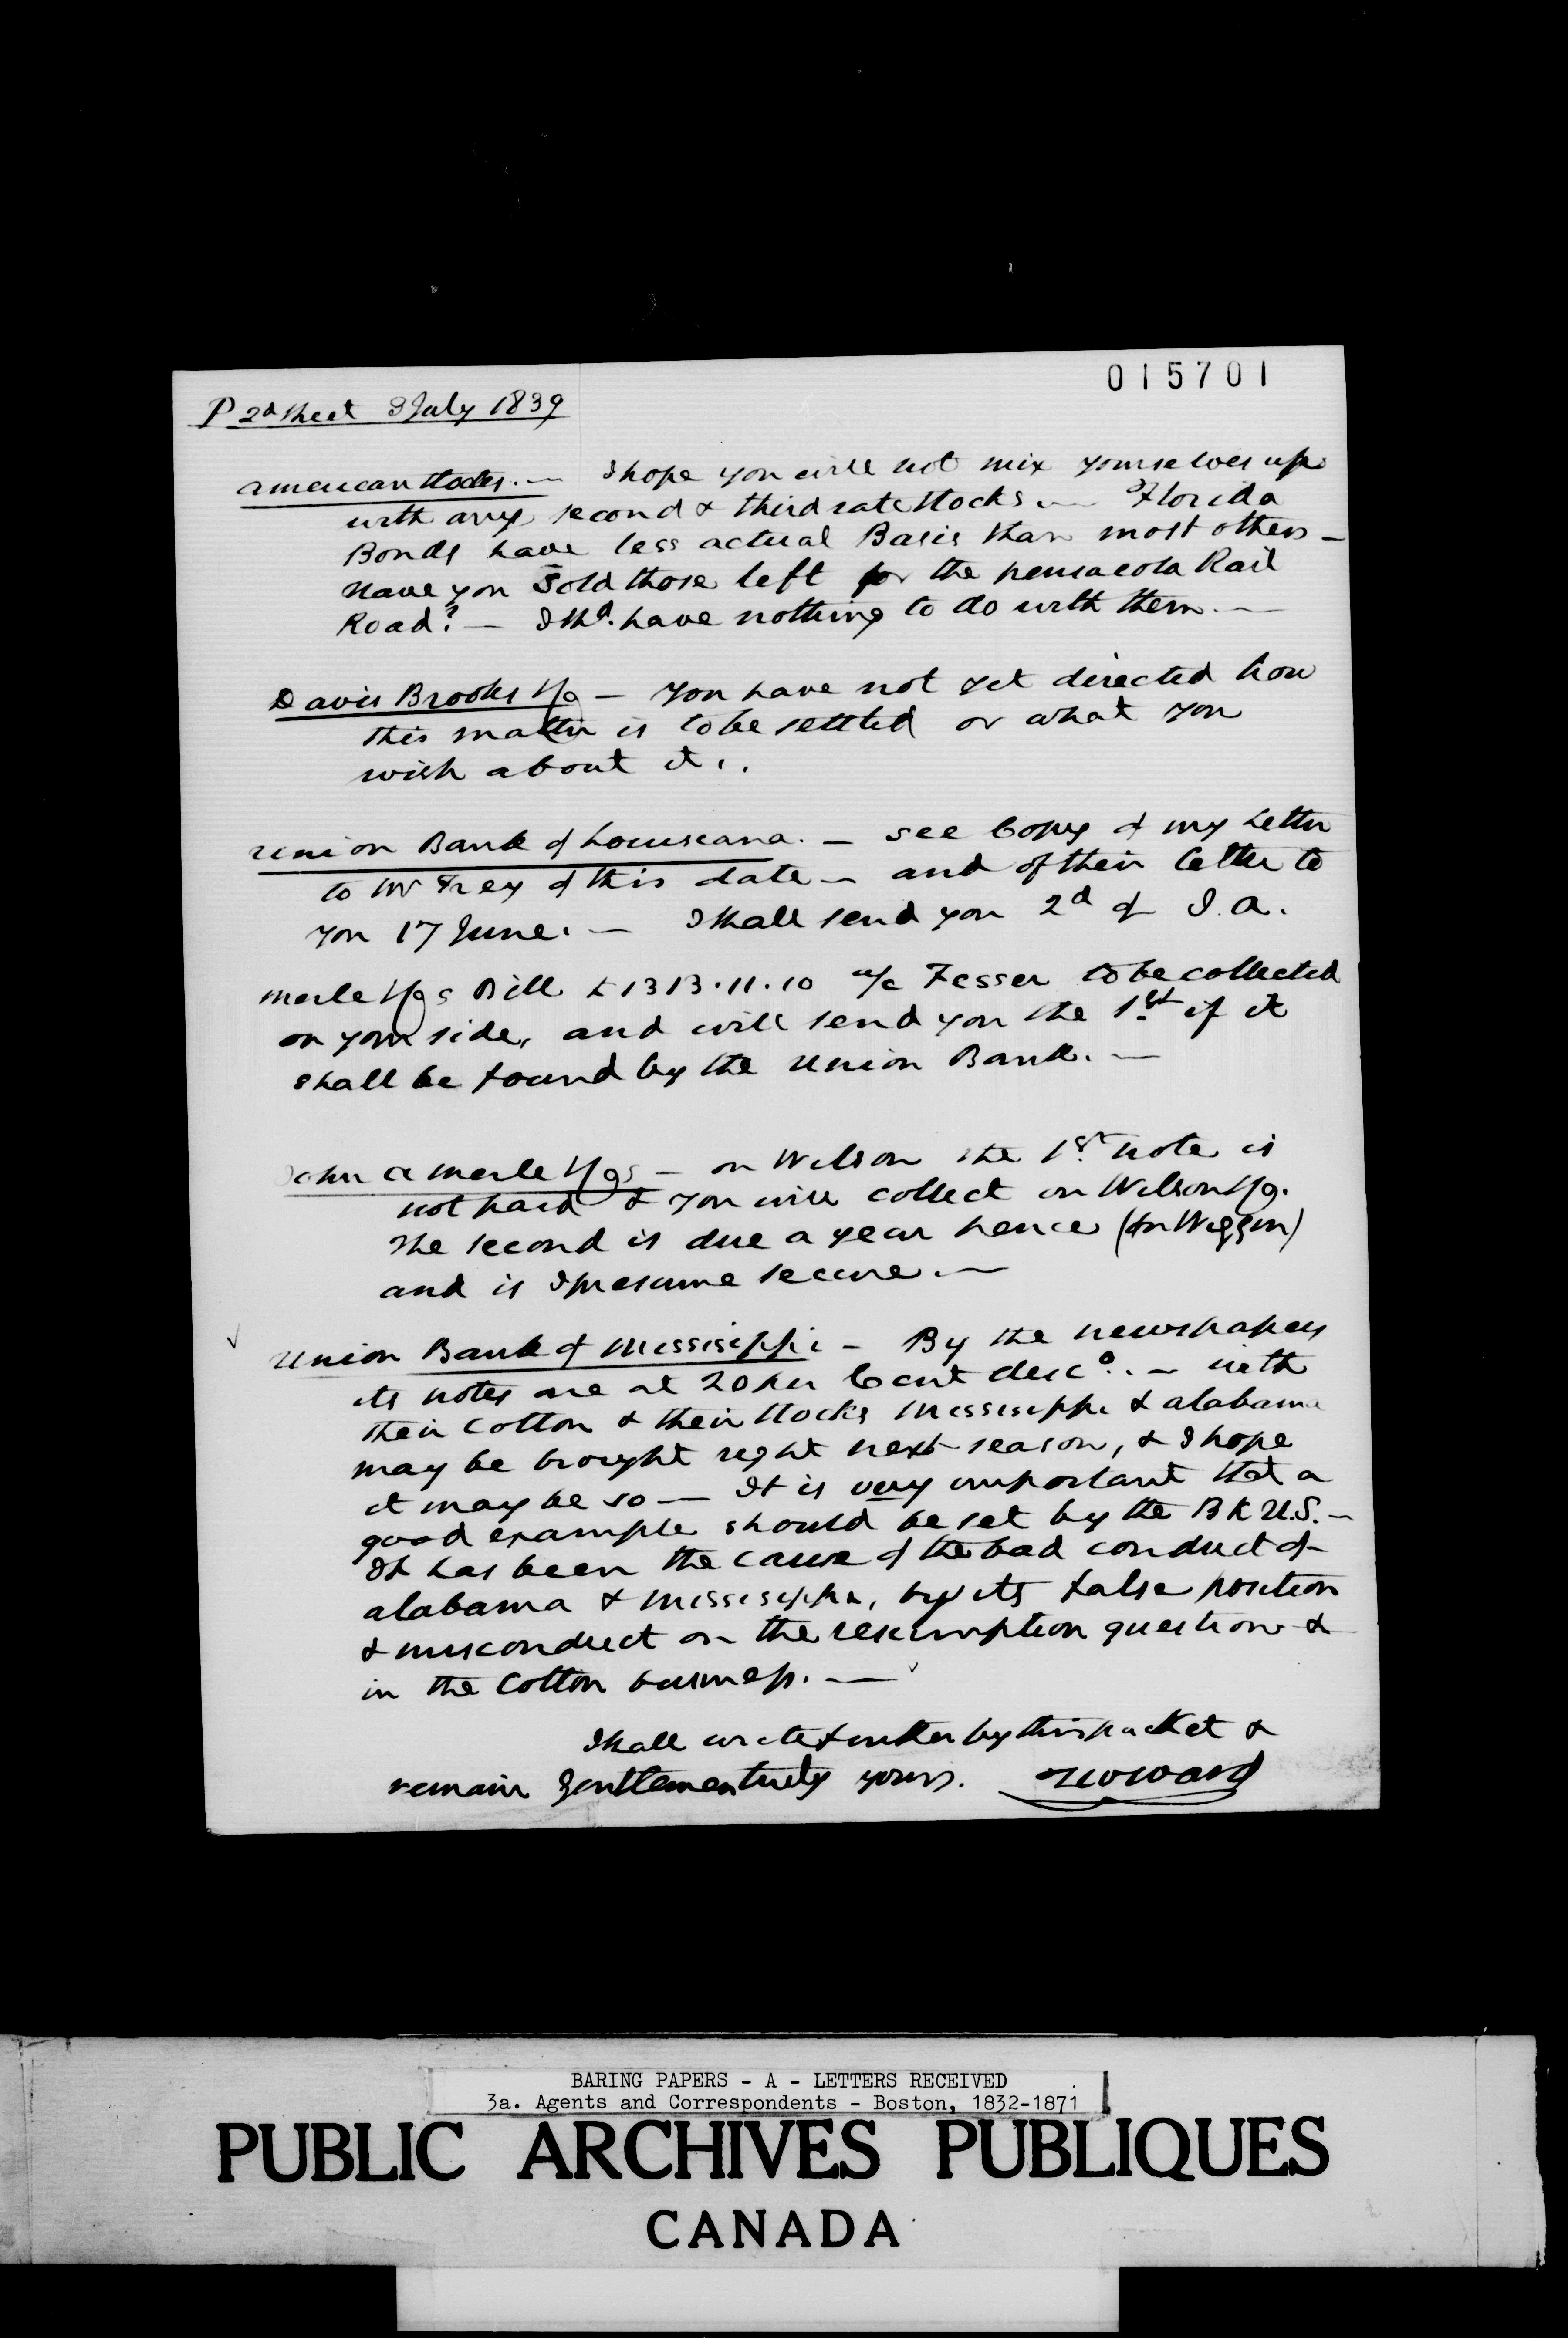 015701
P 2d Sheet 3 July 1839
American Stocks. — I hope you will not mix yourselves up
with any second & third rate Stocks — Florida
Bonds have less actual Basis than most others —
Have you Sold those left for the Pensacola Rail
Road? — I shd. have nothing to do with them. —
Davis Brooks & Co — You have not yet directed how
this matter is to be settled or what you
wish about it.
Union Bank of Louisiana. — See Copy of my Letter
to Mr Frey of this date — and of their letter to
you 17 June. — I shall send you 2d of J. A.
Merle & Co's Bill £1313.11.10 a/c Fesser to be collected
on your side, and will send you the 1st if it
shall be found by the Union Bank. —
John A Merle & Co's — on Wilson the 1st note is
not paid & you will collect on Wilson & Co.
The second is due a year hence (on Wiggin)
and is I presume secure. —
Union Bank of Mississippi — By the newspapers
its notes are at 20 per Cent disco. — with
their Cotton & their Stocks Mississippi & Alabama
may be brought right next season, & I hope
it may be so — It is very important that a
good example should be set by the B K U.S. —
It has been the cause of the bad conduct of
Alabama & Mississippi, by its false position
& misconduct on the resumption question &
in the Cotton business. —
I shall write further by this packet &
remain Gentlemen truly yours. TWWard
BARING PAPERS - A - LETTERS RECEIVED
3a. Agents and Correspondents - Boston, 1832-1871
PUBLIC ARCHIVES PUBLIQUES
CANADA